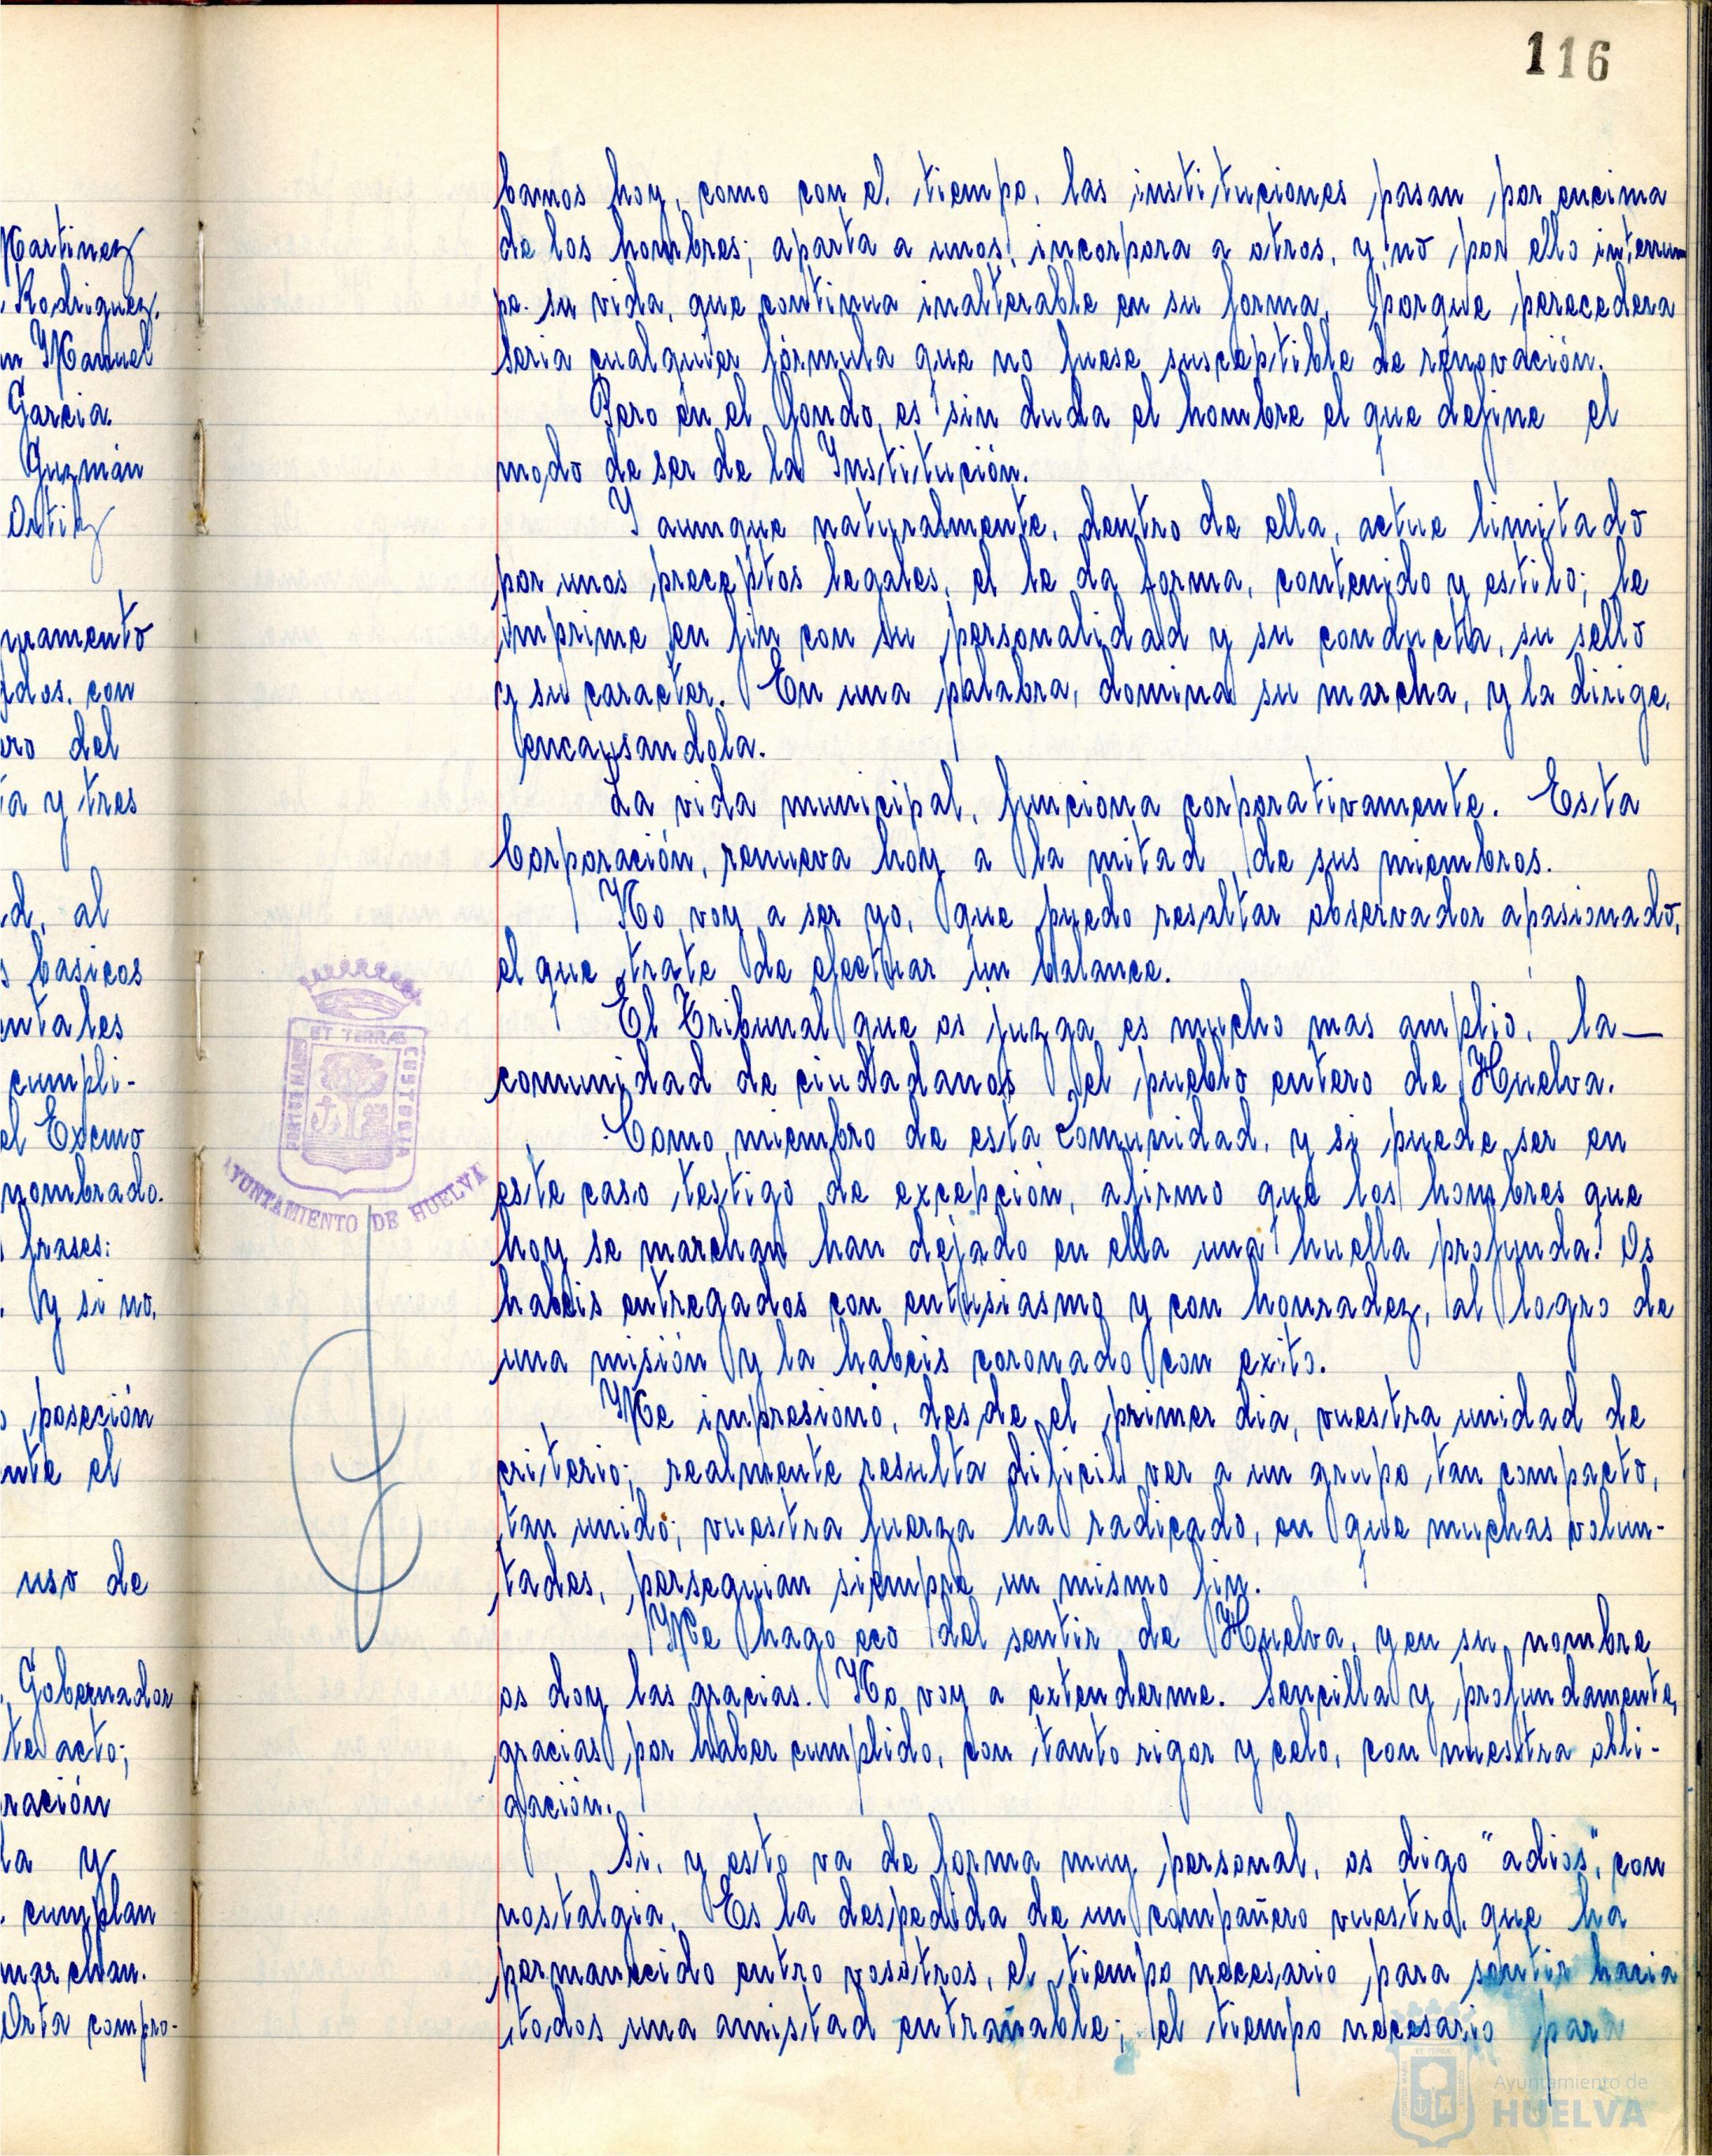 116
Martinez
Rodriguez.
n Manuel
Garcia.
Guzmán
Ortiz
uramento
dos, con
ro del
ta y tres
d, al
s basicos
entales
cumpli-
el Excmo
nombrado.
frases:
. y si no,
poseción
nte el
uso de
Gobernador
te acto;
ración
la y
. cumplan
marchan.
Orta compro-
bamos hoy, como con el tiempo, las instituciones pasan por encima
de los hombres; aparta a unos, incorpora a otros, y no por ello interrum
pe su vida, que continua inalterable en su forma, porque perecedera
seria cualquier fórmula que no fuese susceptible de renovación.
Pero en el fondo, es sin duda el hombre el que define el
modo de ser de la Institución.
Y aunque naturalmente, dentro de ella, actue limitado
por unos preceptos legales, el le da forma, contenido y estilo; le
imprime en fin con su personalidad y su conducta, su sello
y su caracter. En una palabra, domina su marcha, y la dirige,
encausandola.
La vida municipal, funciona corporativamente. Esta
Corporación, renueva hoy a la mitad de sus miembros.
No voy a ser yo, que puedo resaltar observador apasionado,
el que trate de efectuar un balance.
El Tribunal que os juzga es mucho mas amplio, la—
comunidad de ciudadanos del pueblo entero de Huelva.
Como miembro de esta Comunidad, y si puede ser en
este caso testigo de excepción, afirmo que los hombres que
hoy se marchan han dejado en ella una huella profunda! Os
habeis entregados con entusiasmo y con honradez, al logro de
una misión y la habeis coronado con exito.
Me impresionó, desde el primer dia, vuestra unidad de
criterio; realmente resulta dificil ver a un grupo tan compacto,
tan unido; vuestra fuerza ha radicado, en que muchas volun-
tades, perseguian siempre un mismo fin.
Me hago eco del sentir de Huelva, y en su nombre
os doy las gracias. No voy a extenderme. Sencilla y profundamente,
gracias por haber cumplido, con tanto rigor y celo, con nuestra obli-
gación.
Si, y esto va de forma muy personal, os digo "adios", con
nostalgia. Es la despedida de un compañero vuestro, que ha
permanecido entro vosotros, el tiempo necesario para sentir hacia
todos una amistad entrañable; el tiempo necesario para
PORTUS MARIS ET TERRAE CUSTODIA
AYUNTAMIENTO DE HUELVA
Ayuntamiento de
HUELVA